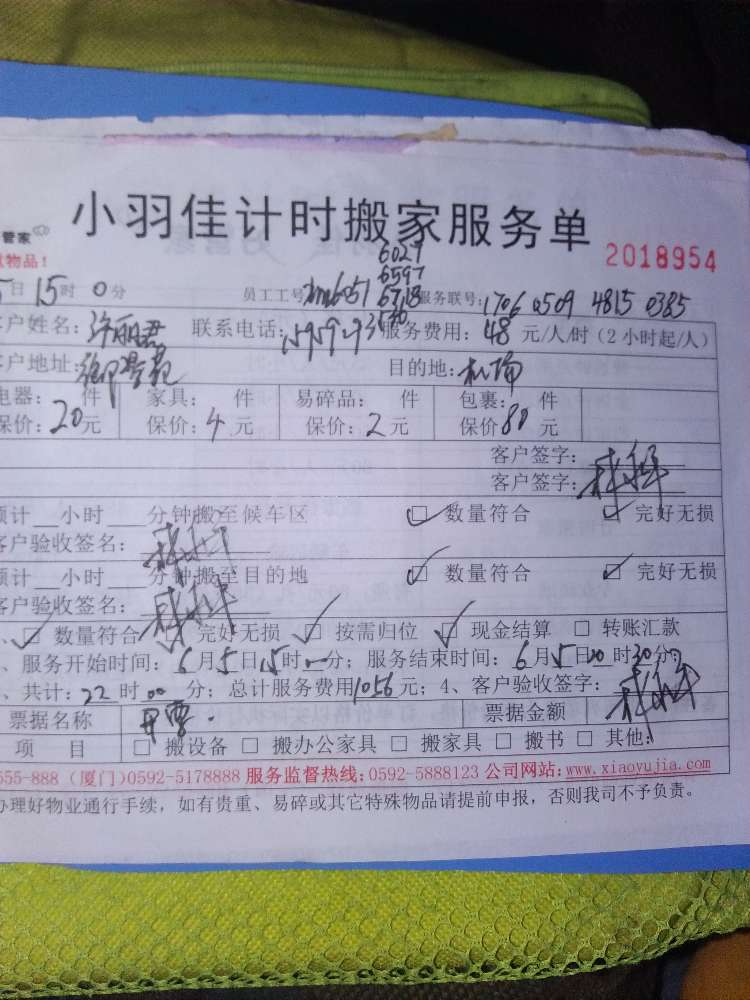 小羽佳计时搬家服务单
管家
2018954
物品!
5日 15时 0分
6027
6597
员工工号 服务联号: 1706 0509 4815 0385
客户姓名: 许丽君 联系电话: 服务费用: 48 元/人/时(2小时起/人)
客户地址: 御景苑 目的地:
电器: 件 家具: 件 易碎品: 件 包裹: 件
保价: 20元 保价: 4元 保价: 2元 保价 80元
客户签字:
客户签字:
预计__小时___分钟搬至候车区 ☑ 数量符合 ☑ 完好无损
客户验收签名:
预计__小时___分钟搬至目的地 ☑ 数量符合 ☑ 完好无损
客户验收签名:
、☑ 数量符合 ☑ 完好无损 ☑ 按需归位 ☑ 现金结算 □ 转账汇款
、服务开始时间: 6月5日15时一分; 服务结束时间: 6月5日20时30分;
、共计: 22时00分; 总计服务费用1056元; 4、客户验收签字:
票据名称 开票. 票据金额
项 目 □ 搬设备 □ 搬办公家具 □ 搬家具 □ 搬书 □ 其他:
555-888 (厦门)0592-5178888 服务监督热线:0592-5888123 公司网站:www.xiaoyujia.com
办理好物业通行手续,如有贵重、易碎或其它特殊物品请提前申报,否则我司不予负责。